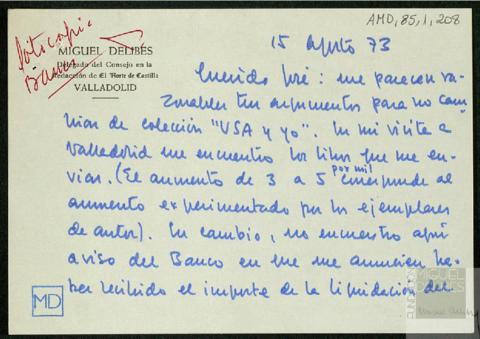 AMD, 85, 1, 208
Fotocopia
Banco
MIGUEL DELIBES
Delegado del Consejo en la
Redacción de El Norte de Castilla
VALLADOLID
15 agosto 73
Querido José: me parecen ra-
zonables tus argumentos para no cam-
biar de colección "USA y yo". En mi visita a
Valladolid me encuentro los libros que me en-
vías. (El aumento de 3 a 5 por mil corresponde al
aumento experimentado por los ejemplares
de autor). En cambio, no encuentro aquí
aviso del Banco en que me anuncien ha-
ber recibido el importe de la liquidación del
MD
FUNDACIÓN
MIGUEL
DELIBES